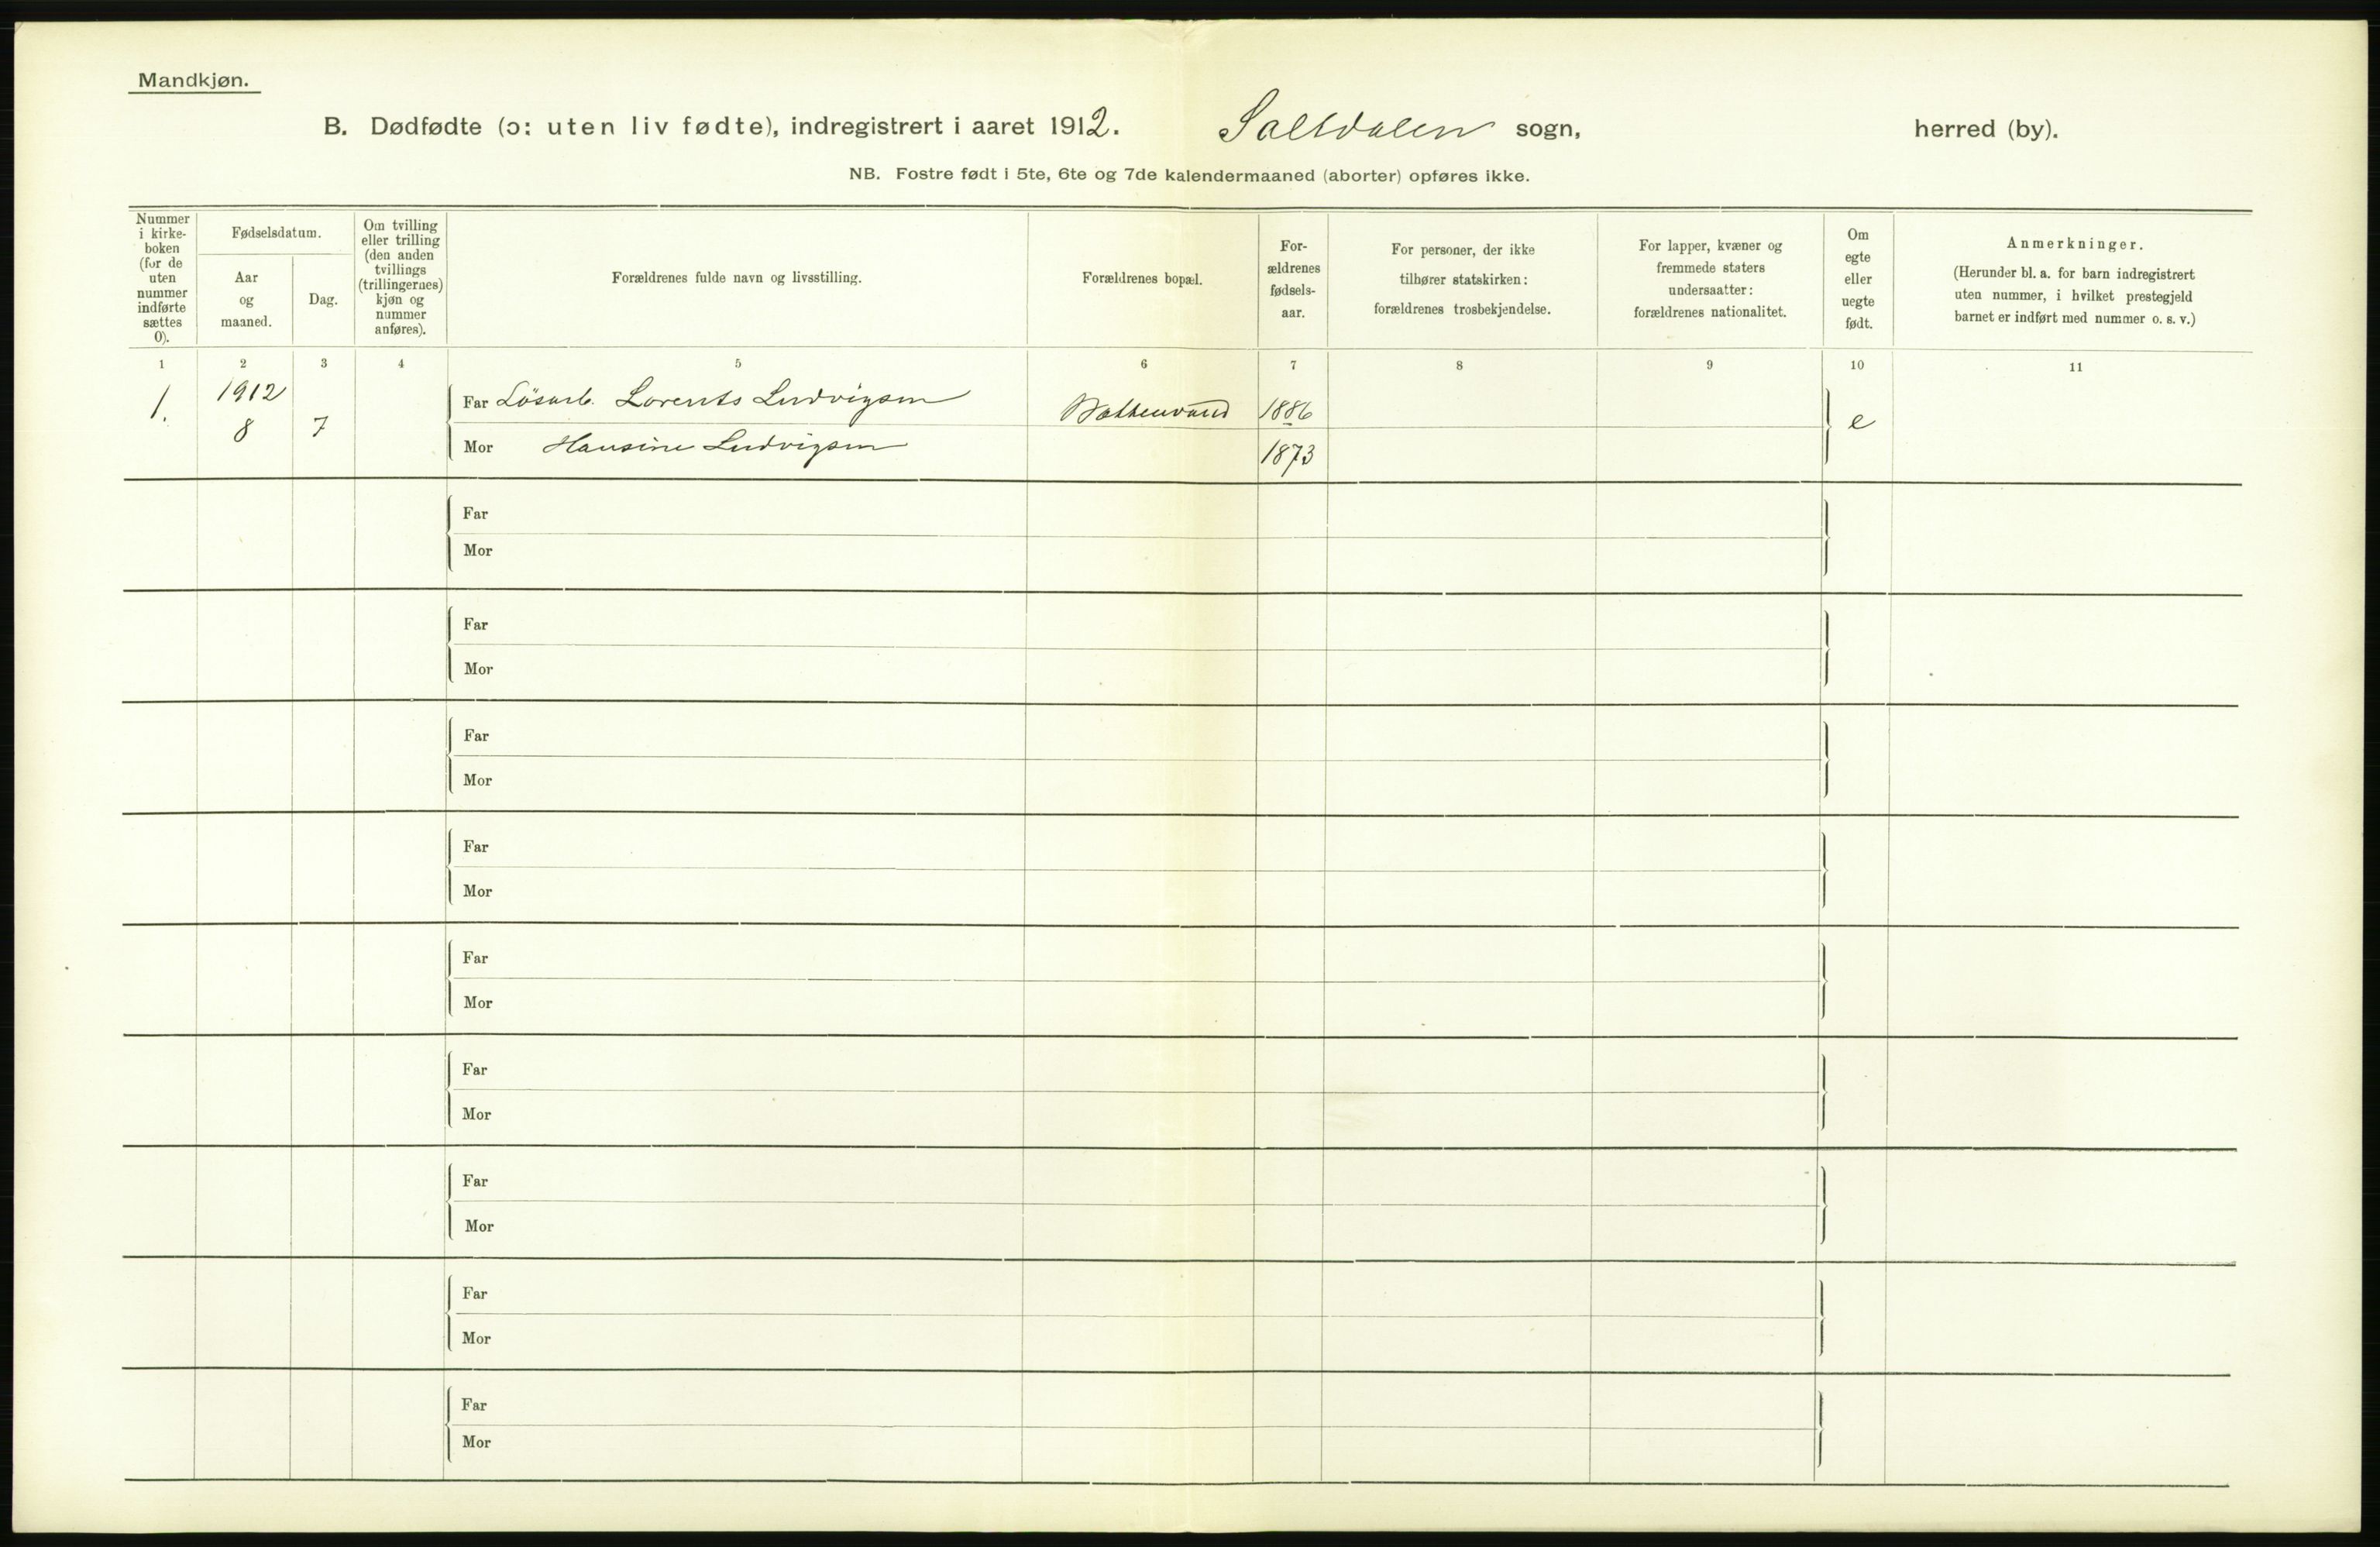 Mandkjøn.
B. Dødfødte (ɔ: uten liv fødte), indregistrert i aaret 1912. Saltdalen sogn, herred (by).
NB. Fostre født i 5te, 6te og 7de kalendermaaned (aborter) opføres ikke.
Nummer
i kirke-
boken
(for de
uten
nummer
indførte
sættes
0).
Fødselsdatum.
Aar
og
maaned.
Dag.
Om tvilling
eller trilling
(den anden
tvillings
(trillingernes)
kjøn og
nummer
anføres).
Forældrenes fulde navn og livsstilling.
Forældrenes bopæl.
For-
ældrenes
fødsels-
aar.
For personer, der ikke
tilhører statskirken:
forældrenes trosbekjendelse.
For lapper, kvæner og
fremmede staters
undersaatter:
forældrenes nationalitet.
Om
egte
eller
uegte
født.
Anmerkninger.
(Herunder bl. a. for barn indregistrert
uten nummer, i hvilket prestegjeld
barnet er indført med nummer o. s. v.)
1 2 3 4 5 6 7 8 9 10 11
1. 1912 8 7
Far Lösarb. Lorents Ludvigsen 1886 e
Mor Hansine Ludvigsen 1873
Far
Mor
Far
Mor
Far
Mor
Far
Mor
Far
Mor
Far
Mor
Far
Mor
Far
Mor
Far
Mor